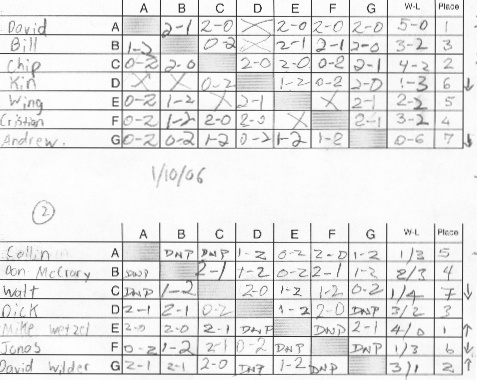 A B C D E F G W-L Place
David A 2-1 2-0 X 2-0 2-0 2-0 5-0 1
Bill B 1-2 0-2 X 2-1 2-1 2-0 3-2 3
Chip C 0-2 2-0 2-0 2-0 0-2 2-1 4-2 2
Kin D X X 0-2 1-2 0-2 2-0 1-3 6 ↓
Wing E 0-2 1-2 X 2-1 X 2-1 2-2 5
Cristian F 0-2 1-2 2-0 2-0 X 2-1 3-2 4
Andrew. G 0-2 0-2 1-2 0-2 1-2 1-2 0-6 7 ↓
1/10/06
2
A B C D E F G W-L Place
Collin A DNP DNP 1-2 0-2 2-0 1-2 1/3 5
Don McCrary B DNP 2-1 1-2 0-2 2-1 1-2 2/3 4
Walt C DNP 1-2 2-0 1-2 1-2 0-2 1/4 7 ↓
Dick D 2-1 2-1 0-2 1-2 2-0 DNP 3/2 3
Mike Wetzel E 2-0 2-0 2-1 DNP DNP 2-1 4/0 1 ↑
Jonas F 0-2 1-2 2-1 0-2 DNP DNP 1/3 6 ↓
David Wilder G 2-1 2-1 2-0 DNP 1-2 DNP 3/1 2 ↑